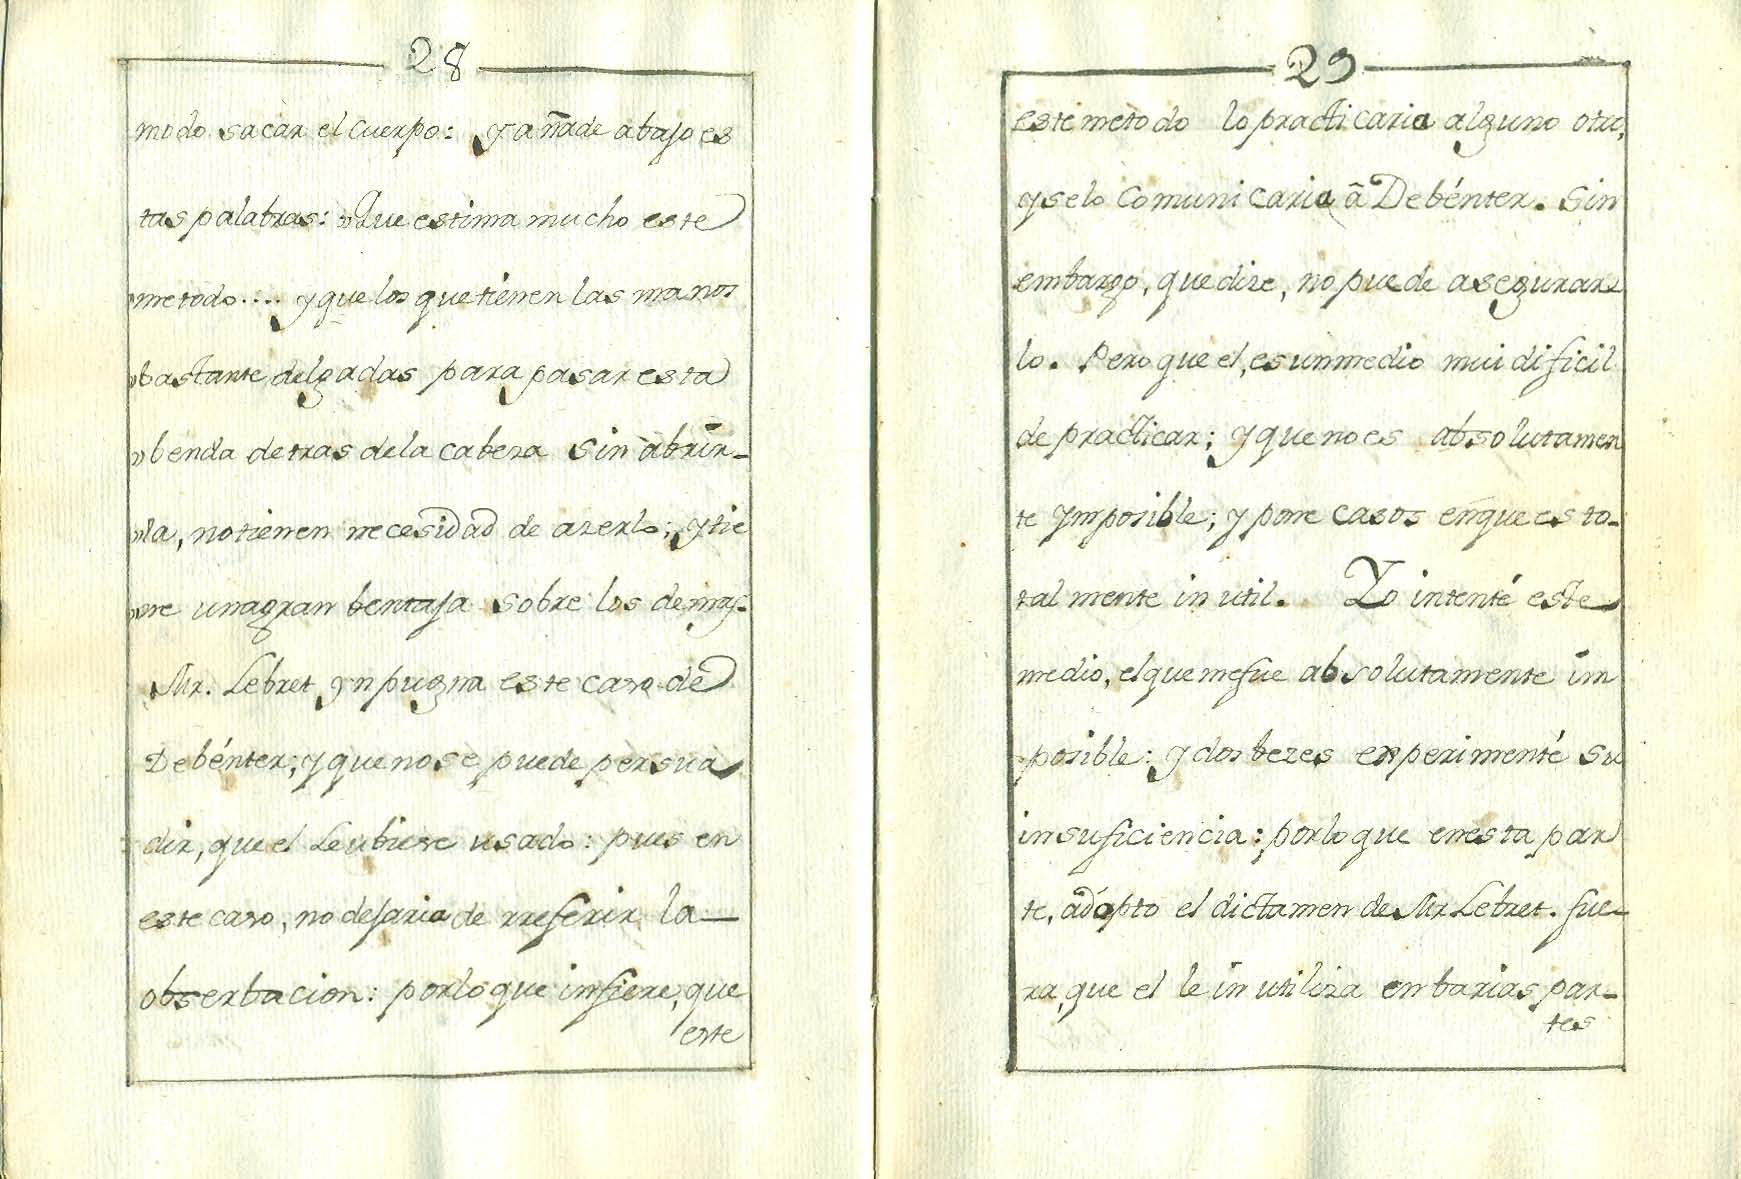 28
modo sacar el cuerpo: y añade abajo es
tas palabras: »Que estima mucho este
»metodo.... y que los que tienen las manos
»bastante delgadas para pasar esta
»benda detras de la cabeza sin abrir-
»la, no tienen necesidad de azerlo; y tie
»ne una gran bentaja sobre los demas.
Mr. Lebret ynpugna este caso de
Debénter; y que no se puede persua
dir, que el Le ubiese usado: pues en
este caso, no dejaria de rreferir la—
obserbacion: por lo que infiere, que
este
29
este metodo lo practicaria alguno otro,
y se lo Comunicaria â Debénter. Sin
embargo, que dize, no puede asegurar
lo. Pero que el, es un medio mui dificil
de practicar; y que no es absolutamen
te ymposible; y pone casos en que es to-
talmente inutil. Yo intenté este
medio, el que me fue absolutamente im
posible: y dos bezes experimenté su
insuficiencia: por lo que en esta par
te, adopto el dictamen de Mr Lebret. fue-
ra, que el le inutiliza en barias par-
tes